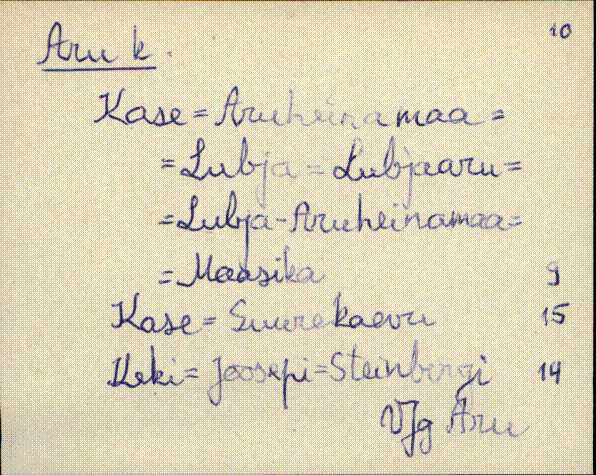 10
Aru k.
Kase = Aruheinamaa =
= Lubja = Lubjaaru =
= Lubja-Aruheinamaa =
= Maasika 9
Kase = Suurekaevu 15
Keki = Joosepi = Steinbergi 14
VJg Aru